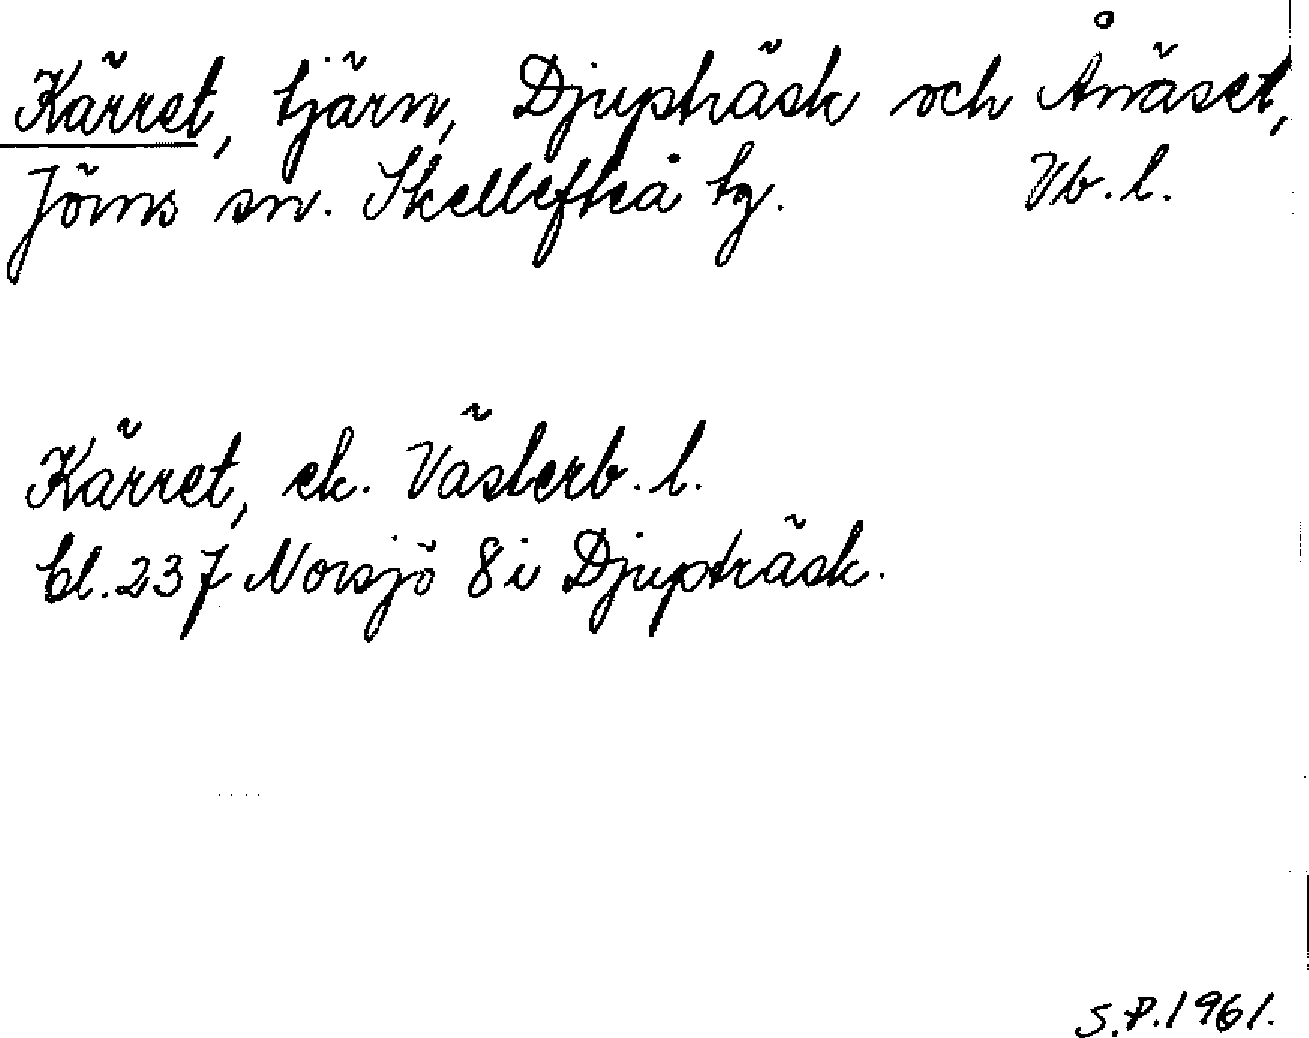 Kärret, tjärn, Djupträsk och Ånäset,
Jörns sn. Skellefteå tg. Vb. l.
Kärret, ek. Västerb. l.
bl. 237 Norsjö 8 i Djupträsk.
S.P. 1961.